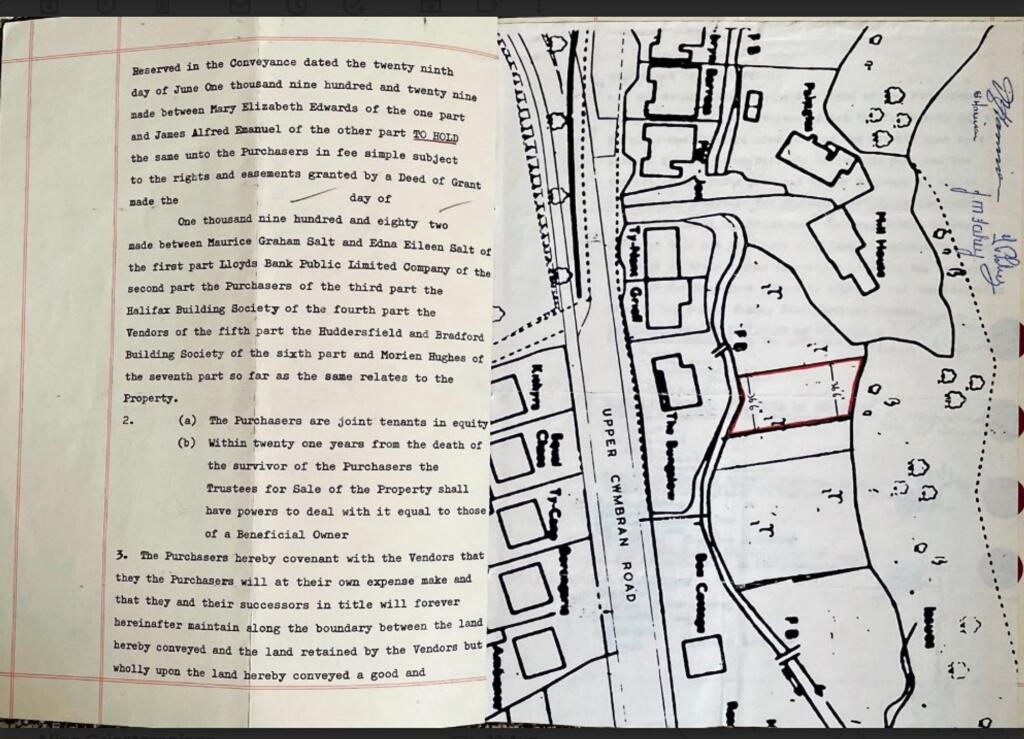 Reserved in the Conveyance dated the twenty ninth
day of June One thousand nine hundred and twenty nine
made between Mary Elizabeth Edwards of the one part
and James Alfred Emanuel of the other part TO HOLD
the same unto the Purchasers in fee simple subject
to the rights and easements granted by a Deed of Grant
made the day of
One thousand nine hundred and eighty two
made between Maurice Graham Salt and Edna Eileen Salt of
the first part Lloyds Bank Public Limited Company of the
second part the Purchasers of the third part the
Halifax Building Society of the fourth part the
Vendors of the fifth part the Huddersfield and Bradford
Building Society of the sixth part and Morien Hughes of
the seventh part so far as the same relates to the
Property.
2. (a) The Purchasers are joint tenants in equity
(b) Within twenty one years from the death of
the survivor of the Purchasers the
Trustees for Sale of the Property shall
have powers to deal with it equal to those
of a Beneficial Owner
3. The Purchasers hereby covenant with the Vendors that
they the Purchasers will at their own expense make and
that they and their successors in title will forever
hereinafter maintain along the boundary between the land
hereby conveyed and the land retained by the Vendors but
wholly upon the land hereby conveyed a good and
FB
Mill House
FB
The Bungalow
UPPER CWMBRAN ROAD
FB
Issues